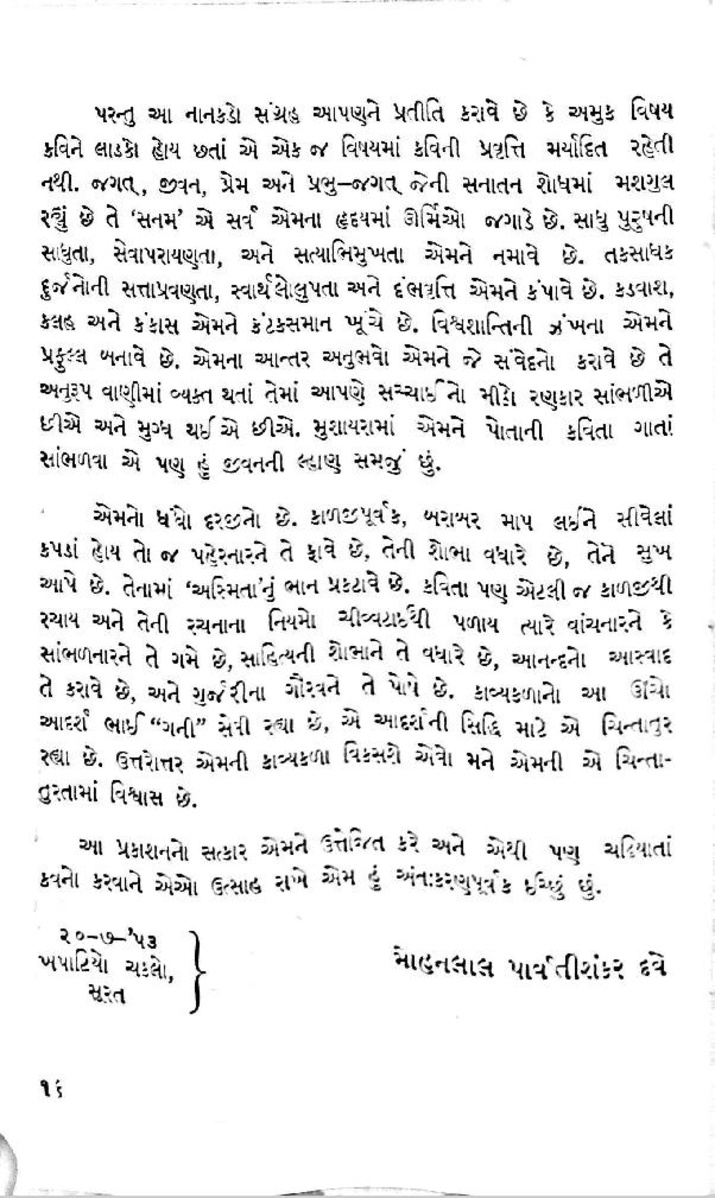 પરન્તુ આ નાનકડો સંગ્રહ આપણને પ્રતીતિ કરાવે છે કે અમુક વિષય
કવિને લાડકો હોય છતાં એ એક જ વિષયમાં કવિની પ્રવૃત્તિ મર્યાદિત રહેતી
નથી. જગત્, જીવન, પ્રેમ અને પ્રભુ–જગત્ જેની સનાતન શોધમાં મશગુલ
રહ્યું છે તે ‘સનમ’ એ સર્વ એમના હૃદયમાં ઊર્મિઓ જગાડે છે. સાધુ પુરુષની
સાધુતા, સેવાપરાયણતા, અને સત્યાભિમુખતા એમને નમાવે છે. તકસાધક
દુર્જનોની સત્તાપ્રવણતા, સ્વાર્થલોલુપતા અને દંભવૃત્તિ એમને કંપાવે છે. કડવાશ,
કલહ અને કંકાસ એમને કંટકસમાન ખૂંચે છે. વિશ્વશાન્તિની ઝંખના એમને
પ્રફુલ્લ બનાવે છે. એમના આન્તર અનુભવો એમને જે સંવેદનો કરાવે છે તે
અનુરૂપ વાણીમાં વ્યક્ત થતાં તેમાં આપણે સચ્ચાઈનો મીઠો રણકાર સાંભળીએ
છીએ અને મુગ્ધ થઈએ છીએ. મુશાયરામાં એમને પોતાની કવિતા ગાતાં
સાંભળવા એ પણ હું જીવનની લ્હાણ સમજું છું.
એમનો ધંધો દરજીનો છે. કાળજીપૂર્વક, બરાબર માપ લઈને સીવેલાં
કપડાં હોય તો જ પહેરનારને તે ફાવે છે, તેની શોભા વધારે છે, તેને સુખ
આપે છે. તેનામાં ‘અસ્મિતા’નું ભાન પ્રકટાવે છે. કવિતા પણ એટલી જ કાળજીથી
રચાય અને તેની રચનાના નિયમો ચીવ્વટાઈથી પળાય ત્યારે વાંચનારને કે
સાંભળનારને તે ગમે છે, સાહિત્યની શોભાને તે વધારે છે, આનન્દનો આસ્વાદ
તે કરાવે છે, અને ગુર્જરીના ગૌરવને તે પોષે છે. કાવ્યકળાનો આ ઊંચો
આદર્શ ભાઈ “ગની” સેવી રહ્યા છે, એ આદર્શની સિદ્ધિ માટે એ ચિન્તાતુર
રહ્યા છે. ઉત્તરોત્તર એમની કાવ્યકળા વિકસશે એવો મને એમની એ ચિન્તા-
તુરતામાં વિશ્વાસ છે.
આ પ્રકાશનનો સત્કાર એમને ઉત્તેજિત કરે અને એથી પણ ચઢિયાતાં
કવનો કરવાને એઓ ઉત્સાહ રાખે એમ હું અંતઃકરણપૂર્વક ઈચ્છું છું.
૨૦–૭–’૫૩
ખપાટિયો ચકલો,
સૂરત
મોહનલાલ પાર્વતીશંકર દવે
૧૬